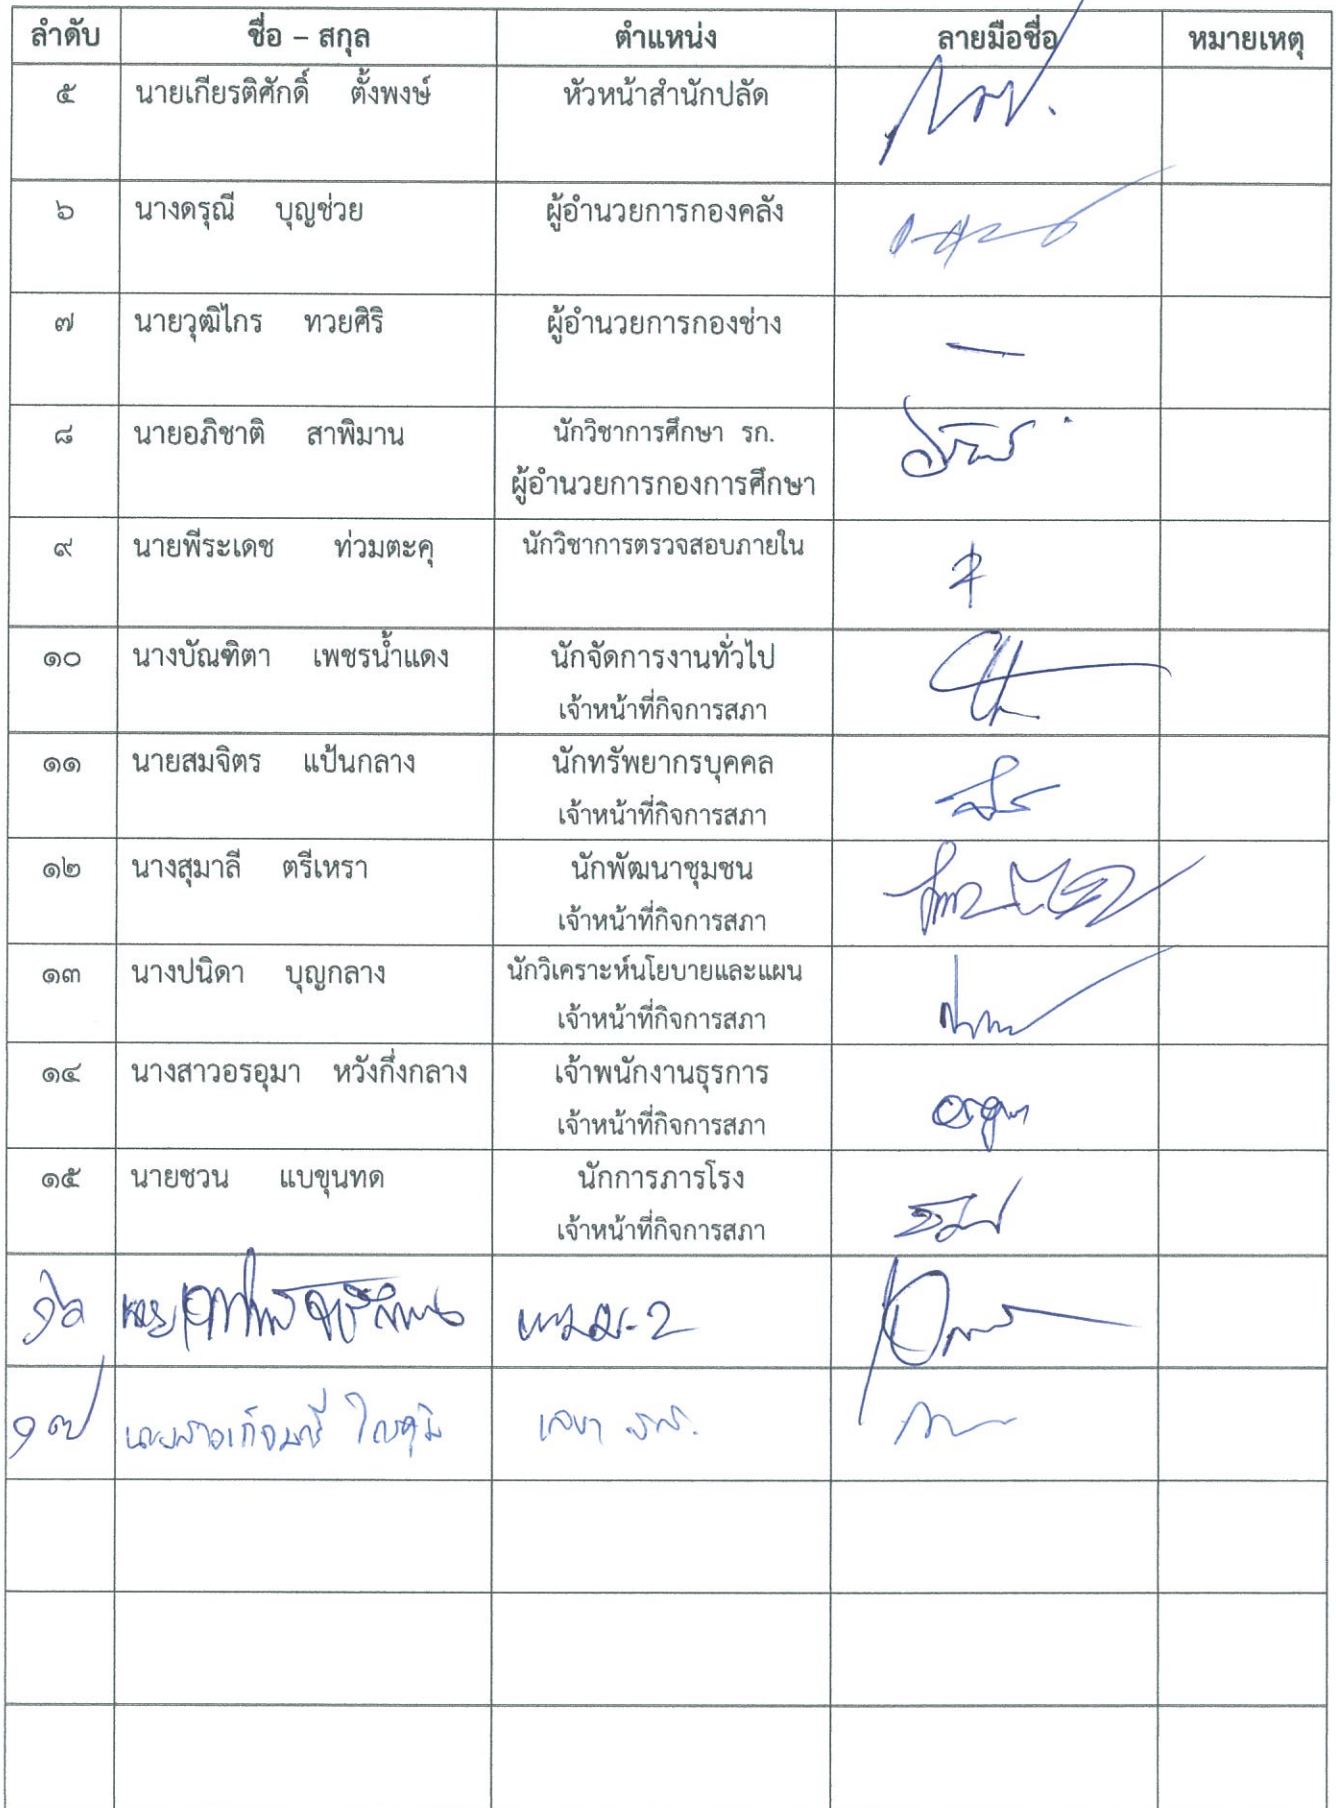 ลำดับ ชื่อ – สกุล ตำแหน่ง ลายมือชื่อ หมายเหตุ
๕ นายเกียรติศักดิ์ ตั้งพงษ์ หัวหน้าสำนักปลัด
๖ นางดรุณี บุญช่วย ผู้อำนวยการกองคลัง
๗ นายวุฒิไกร ทวยศิริ ผู้อำนวยการกองช่าง
๘ นายอภิชาติ สาพิมาน นักวิชาการศึกษา รก.
ผู้อำนวยการกองการศึกษา
๙ นายพีระเดช ท่วมตะคุ นักวิชาการตรวจสอบภายใน
๑๐ นางบัณฑิตา เพชรน้ำแดง นักจัดการงานทั่วไป
เจ้าหน้าที่กิจการสภา
๑๑ นายสมจิตร แป้นกลาง นักทรัพยากรบุคคล
เจ้าหน้าที่กิจการสภา
๑๒ นางสุมาลี ตรีเหรา นักพัฒนาชุมชน
เจ้าหน้าที่กิจการสภา
๑๓ นางปนิดา บุญกลาง นักวิเคราะห์นโยบายและแผน
เจ้าหน้าที่กิจการสภา
๑๔ นางสาวอรอุมา หวังกึ่งกลาง เจ้าพนักงานธุรการ
เจ้าหน้าที่กิจการสภา
๑๕ นายชวน แบขุนทด นักการภารโรง
เจ้าหน้าที่กิจการสภา
๑๖
๑๗